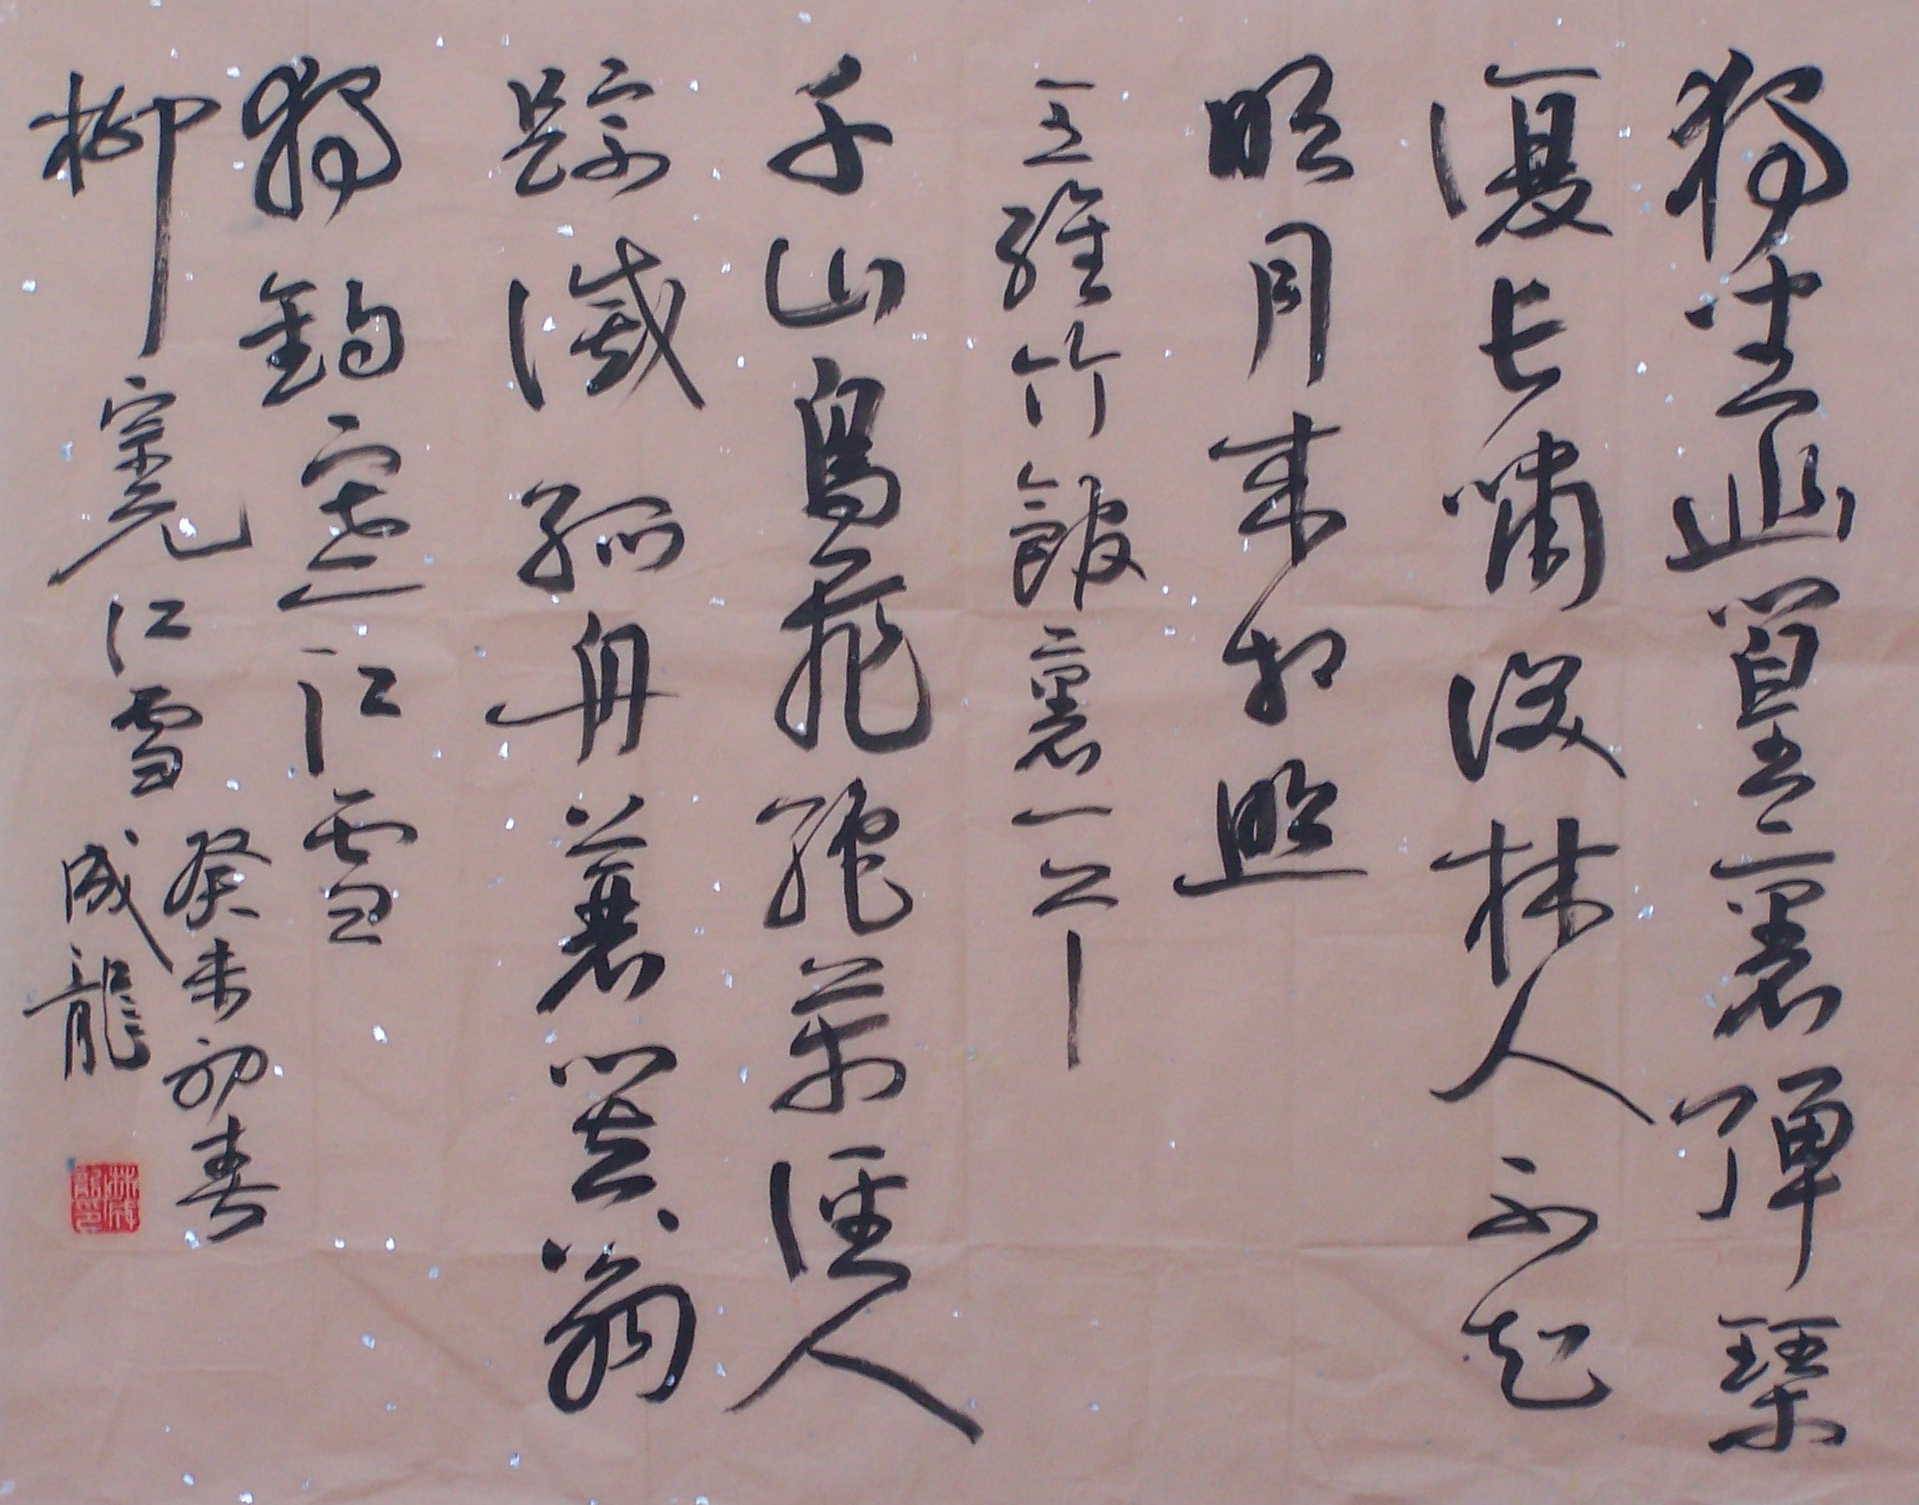 獨坐幽篁裏彈琴
復長嘯深林人不知
明月来相照
王維竹館裏一
千山鳥飛絕萬徑人
踪滅孤舟蓑笠翁
獨釣寒江雪
柳宗元江雪
癸未初春
成龍
林成龍印